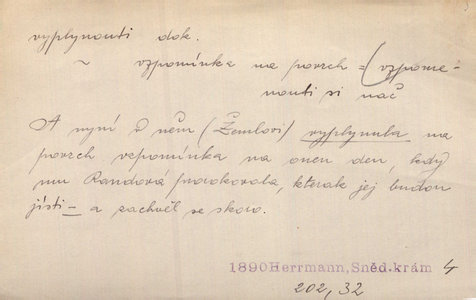 vyplynouti dok.
~ vzpomínka na povrch = (vzpome-
nouti si nač
A nyní v něm (Žemlovi) vyplynula na
povrch vzpomínka na onen den, kdy
mu Randová prorokovala, kterak jej budou
jísti – a zachvěl se skoro.
1890 Herrmann, Sněd. krám 4
202, 32